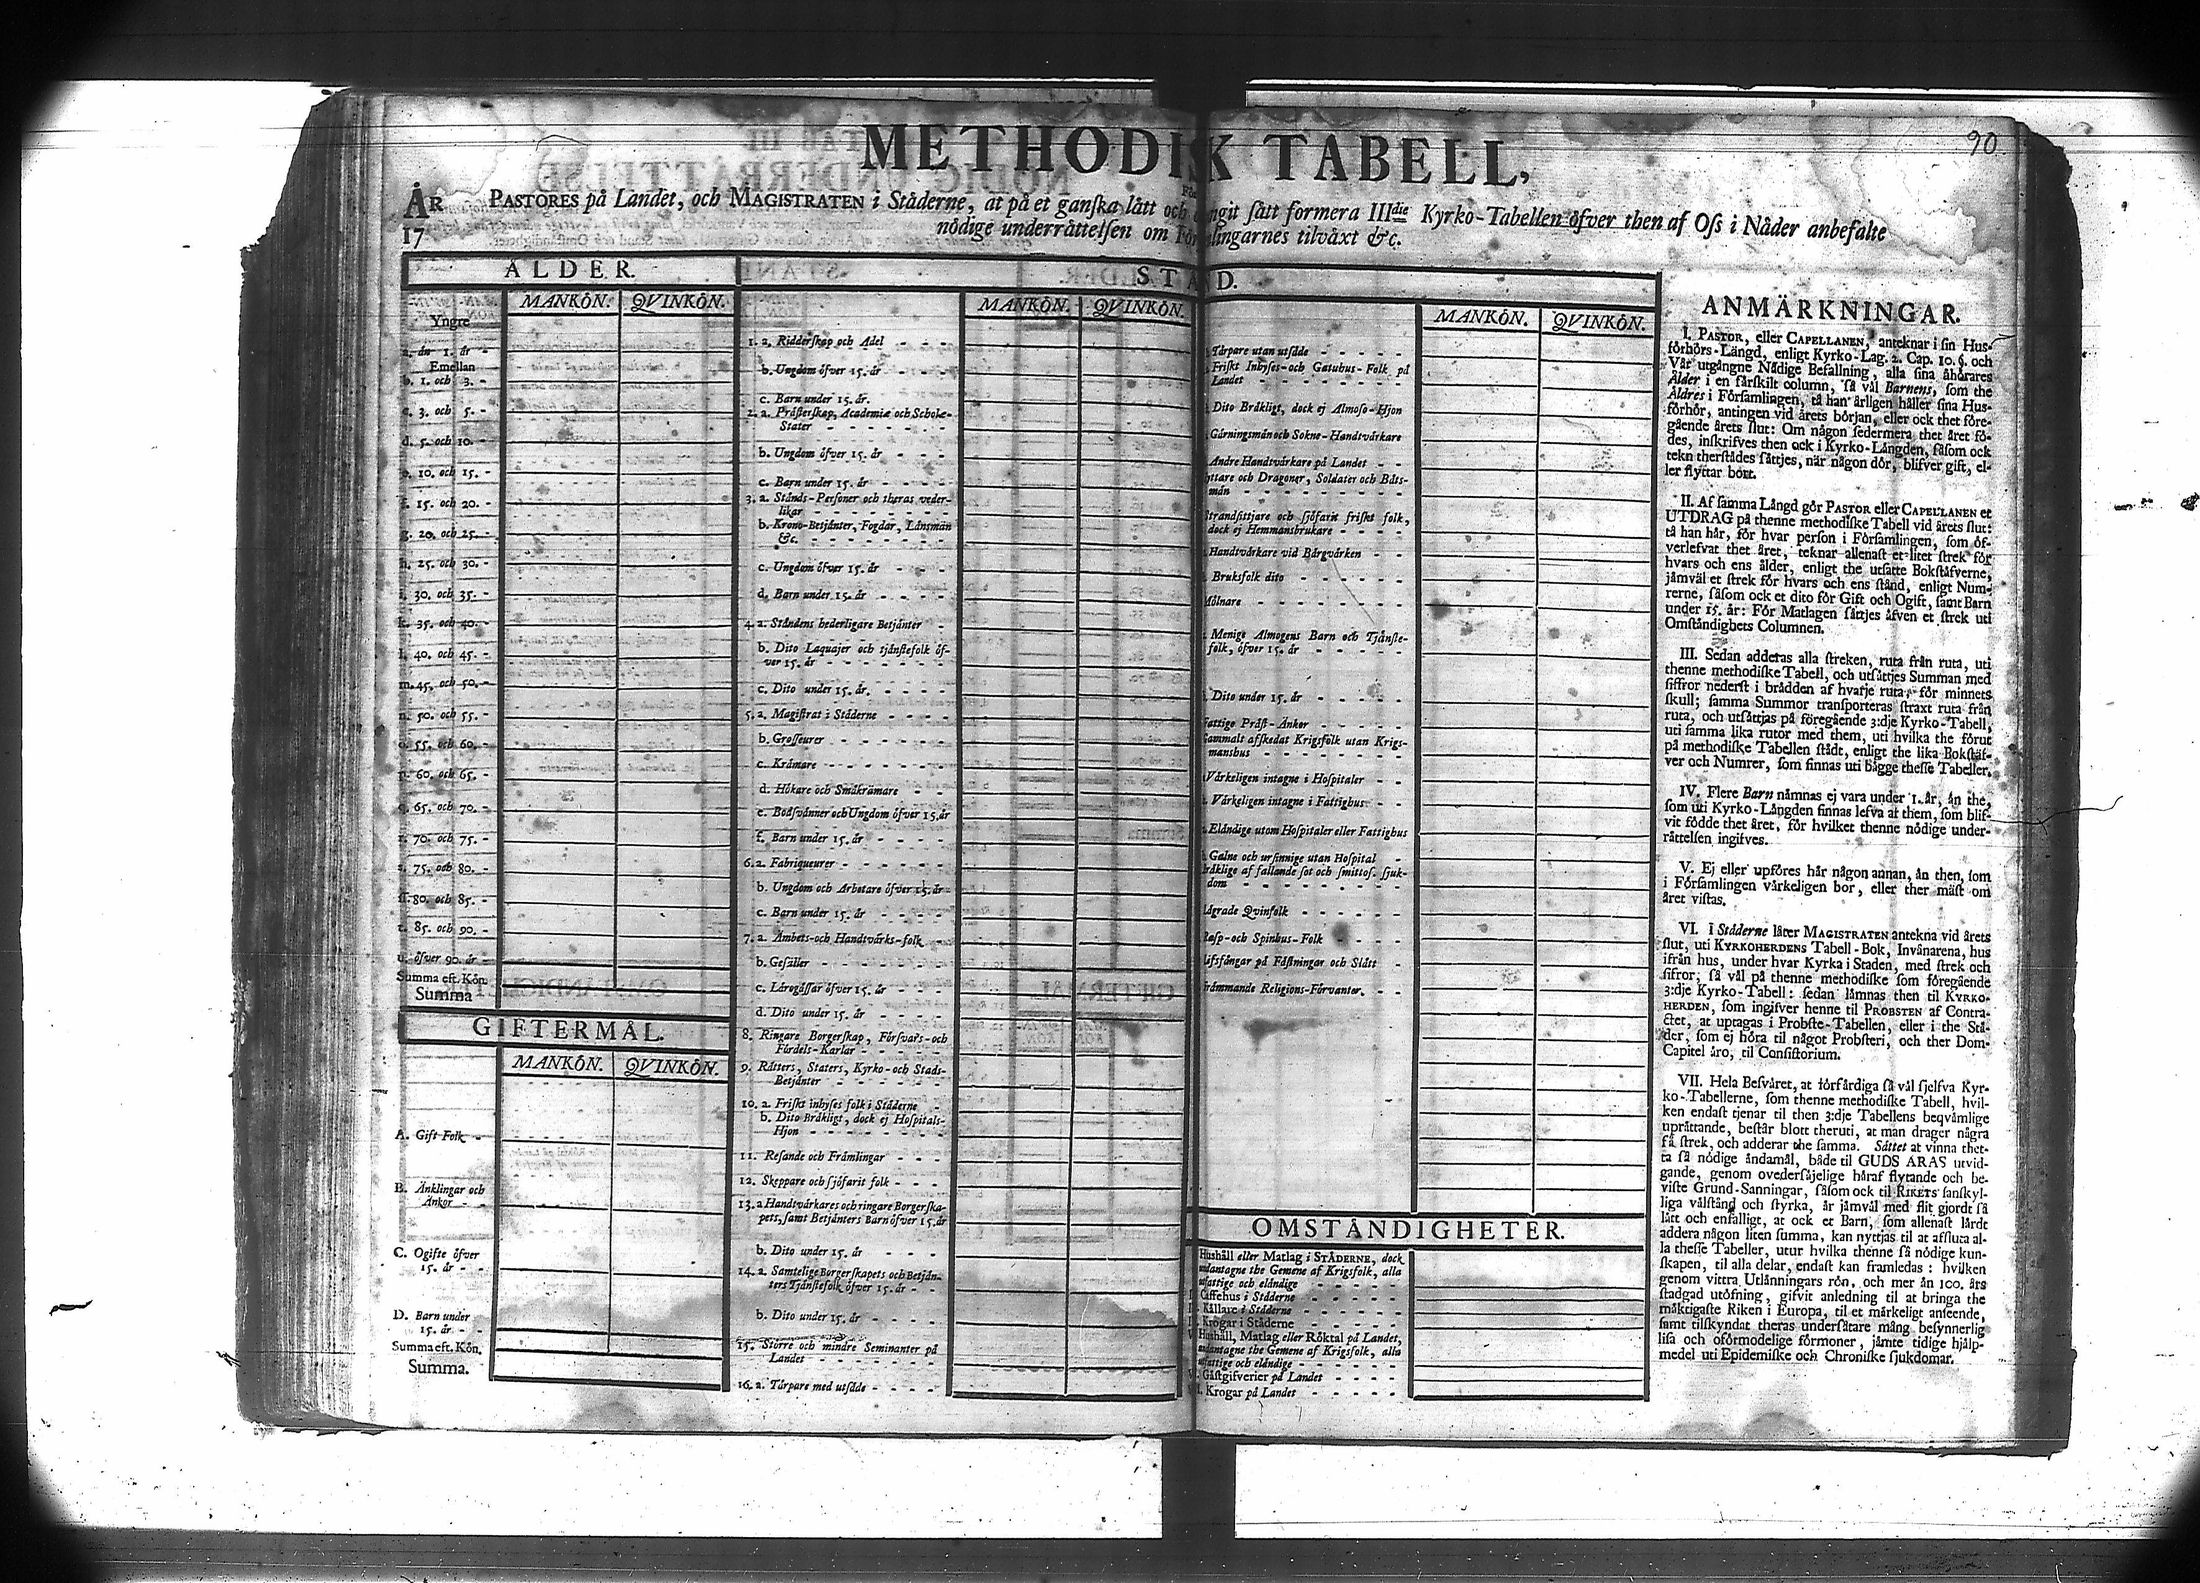 90
METHODISK TABELL,
För
ÅR PASTORES på Landet, och MAGISTRATEN i Städerne, at på et ganska lätt och ... sätt formera IIIdie Kyrko-Tabellen öfver then af Oss i Nåder anbefalte
17 nödige underrättelsen om Församlingarnes tilväxt &c.
ÅLDER.
MANKÖN. QVINKÖN.
Yngre
a. än 1. år -
Emellan
b. 1. och 3. -
c. 3. och 5. -
d. 5. och 10. -
e. 10. och 15. -
f. 15. och 20. -
g. 20. och 25. -
h. 25. och 30. -
i. 30. och 35. -
k. 35. och 40. -
l. 40. och 45. -
m. 45. och 50. -
n. 50. och 55. -
o. 55. och 60. -
p. 60. och 65. -
q. 65. och 70. -
r. 70. och 75. -
s. 75. och 80. -
ſſ. 80. och 85. -
t. 85. och 90. -
u. öfver 90. år -
Summa eft. Kön.
Summa
GIFTERMÅL.
MANKÖN. QVINKÖN.
A. Gift Folk -
B. Änklingar och
Änkor - -
C. Ogifte öfver
15. år - -
D. Barn under
15. år - -
Summa eft. Kön.
Summa.
STAND.
MANKÖN. QVINKÖN.
1. a. Ridderskap och Adel - - -
b. Ungdom öfver 15. år - - -
c. Barn under 15. år.
2. a. Prästerskap, Academiæ och Scholæ-
Stater - - - - - -
b. Ungdom öfver 15. år - - -
c. Barn under 15. år - - - -
3. a. Stånds-Personer och theras veder-
likar - - - - - - -
b. Krono-Betjänter, Fogdar, Länsmän
&c. - - - - - - -
c. Ungdom öfver 15. år - - -
d. Barn under 15. år - - - -
4. a. Ståndens hederligare Betjänter -
b. Dito Laquajer och tjänstefolk öf-
ver 15. år - - - - - -
c. Dito under 15. år. - - - -
5. a. Magistrat i Städerne - - - -
b. Grosseurer - - - - - -
c. Krämare - - - - - -
d. Hökare och Småkrämare - -
e. Bodsvänner och Ungdom öfver 15. år
f. Barn under 15. år - - - -
6. a. Fabriqueurer - - - - - -
b. Ungdom och Arbetare öfver 15. år -
c. Barn under 15. år - - - -
7. a. Ämbets-och Handtvärks-folk -
b. Gesäller - - - - - - -
c. Lärogåssar öfver 15. år - - -
d. Dito under 15. år - - - -
8. Ringare Borgerskap, Försvars-och
Fördels-Karlar - - - - -
9. Rätters, Staters, Kyrko-och Stads-
Betjänter - - - - - - -
10. a. Friskt inhyses folk i Städerne -
b. Dito Bräkligt, dock ej Hospitals-
Hjon - - - - - - -
11. Resande och Främlingar - - -
12. Skeppare och sjöfarit folk - - -
13. a Handtvärkares och ringare Borgerska-
pets, samt Betjänters Barn öfver 15. år
b. Dito under 15. år - - -
14. a. Samtelige Borgerskapets och Betjän-
ters Tjänstefolk öfver 15. år - -
b. Dito under 15. år - - - -
15. Större och mindre Seminanter på
Landet - - - - - - -
16. a. Tärpare med utsäde - - - -
MANKÖN. QVINKÖN.
Tärpare utan utsäde - - - - -
Friskt Inhyses-och Gatuhus-Folk på
Landet - - - - - - -
Dito Bräkligt, dock ej Almoso-Hjon
Gärningsmän och Sokne-Handtvärkare
Andre Handtvärkare på Landet - -
Ryttare och Dragoner, Soldater och Båts-
män - - - - - - - -
Strandsittjare och sjöfarit friskt folk,
dock ej Hemmansbrukare - - -
Handtvärkare vid Bärgvärken - -
Bruksfolk dito - - - - - -
Mölnare - - - - - - -
Menige Almogens Barn och Tjänste-
folk, öfver 15. år - - - - -
Dito under 15. år - - - - -
Fattige Präst-Änkor - - - -
Gammalt afskedat Krigsfolk utan Krigs-
manshus - - - - - - -
Värkeligen intagne i Hospitaler - -
Värkeligen intagne i Fattighus - -
Eländige utom Hospitaler eller Fattighus
Galne och ursinnige utan Hospital -
Bräklige af fallande sot och smittos. sjuk-
dom - - - - - - - -
Lägrade Qvinfolk - - - - -
Rasp-och Spinhus-Folk - - - -
Lifsfångar på Fästningar och Slått -
Främmande Religions-Förvanter. - -
OMSTÄNDIGHETER.
Hushåll eller Matlag i STÄDERNE, dock
undantagne the Gemene af Krigsfolk, alla
utfattige och eländige - - - -
Caffehus i Städerne - - - - -
Källare i Städerne - - - - -
Krogar i Städerne - - - - -
Hushåll, Matlag eller Röktal på Landet,
undantagne the Gemene af Krigsfolk, alla
utfattige och eländige - - - -
Gästgifverier på Landet - - - -
Krogar på Landet - - - - -
ANMÄRKNINGAR.
I. PASTOR, eller CAPELLANEN, anteknar i sin Hus-
förhörs-Längd, enligt Kyrko-Lag. 2. Cap. 10. §. och
Vår utgångne Nådige Befallning, alla sina åhörares
Ålder i en särskilt column, så väl Barnens, som the
Äldres i Församlingen, tå han årligen håller sina Hus-
förhör, antingen vid årets början, eller ock thet före-
gående årets slut: Om någon sedermera thet året fö-
des, inskrifves then ock i Kyrko-Längden, såsom ock
tekn therstädes sättjes, när någon dör, blifver gift, el-
ler flyttar bort.
II. Af samma Längd gör PASTOR eller CAPELLANEN et
UTDRAG på thenne methodiske Tabell vid årets slut:
tå han här, för hvar person i Församlingen, som öf-
verlefvat thet året, teknar allenast et litet strek för
hvars och ens ålder, enligt the utsatte Bokstäfverne,
jämväl et strek för hvars och ens stånd, enligt Num-
rerne, såsom ock et dito för Gift och Ogift, samt Barn
under 15. år: För Matlagen sättjes äfven et strek uti
Omständighets Columnen.
III. Sedan adderas alla streken, ruta från ruta, uti
thenne methodiske Tabell, och utsättjes Summan med
siffror nederst i brädden af hvarje ruta, för minnets
skull; samma Summor transporteras straxt ruta från
ruta, och utsättjas på föregående 3:dje Kyrko-Tabell,
uti samma lika rutor med them, uti hvilka the förut
på methodiske Tabellen stådt, enligt the lika Bokstäf-
ver och Numrer, som finnas uti bägge thesse Tabeller.
IV. Flere Barn nämnas ej vara under 1. år, än the,
som uti Kyrko-Längden finnas lefva at them, som blif-
vit födde thet året, för hvilket thenne nödige under-
rättelsen ingifves.
V. Ej eller upföres här någon annan, än then, som
i Församlingen värkeligen bor, eller ther mäst om
året vistas.
VI. I Städerne låter MAGISTRATEN antekna vid årets
slut, uti KYRKOHERDENS Tabell-Bok, Invånarena, hus
ifrån hus, under hvar Kyrka i Staden, med strek och
sifror; så väl på thenne methodiske som föregående
3:dje Kyrko-Tabell: sedan lämnas then til KYRKO-
HERDEN, som ingifver henne til PROBSTEN af Contra-
ctet, at uptagas i Probste-Tabellen, eller i the Stä-
der, som ej höra til något Probsteri, och ther Dom-
Capitel äro, til Consistorium.
VII. Hela Besväret, at förfärdiga så väl sjelfva Kyr-
ko-Tabellerne, som thenne methodiske Tabell, hvil-
ken endast tjenar til then 3:dje Tabellens beqvämlige
uprättande, består blott theruti, at man drager några
få strek, och adderar the samma. Sättet at vinna thet-
ta så nödige ändamål, både til GUDS ÄRAS utvid-
gande, genom ovedersäjelige häraf flytande och be-
viste Grund-Sanningar, såsom ock til RIKETS sanskyl-
liga välstånd och styrka, är jämväl med flit gjordt så
lätt och enfalligt, at ock et Barn, som allenast lärdt
addera någon liten summa, kan nyttjas til at afsluta al-
la thesse Tabeller, utur hvilka thenne så nödige kun-
skapen, til alla delar, endast kan framledas: hvilken
genom vittra Utlänningars rön, och mer än 100. års
stadgad utöfning, gifvit anledning til at bringa the
mäktigaste Riken i Europa, til et märkeligt anseende,
samt tilskyndat theras undersåtare mång besynnerlig
lisa och oförmodelige förmoner, jämte tidige hjälp-
medel uti Epidemiske och Chroniske sjukdomar.